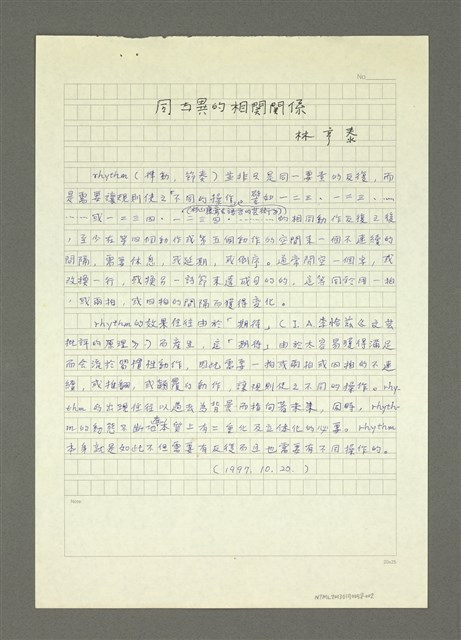 No
同与異的相関関係
林亨泰
rhythm(律動,節奏)並非只是同一要素的反復,而
是需要讓規則使之「不同的操作。譬如一二三‧一二三‧…
…或一二三四‧一二三四‧……的相同動作反復之後
,至少在第四個動作或第五個動作的空間來一個不連續的
間隔,需要休息,或延期,或倒序。通常間空一個字,或
改換一行,或換另一詩節來達成目的的,這等同於用一拍
,或兩拍,或四拍的間隔而獲得變化。
rhythm的效果往往由於「期待」(I.A.李恰慈《文藝
批評的原理》)而產生,這「期待」由於不容易獲得滿足
而会淪於習慣性動作,因此需要一拍或兩拍或四拍的不連
續,或推翻,或顛覆的動作,讓規則使之不同的操作。rhy-
thm的出現往往以過去為背景而指向著未來,同時,rhyth-
m的動態不断在本質上有二重化及立体化的必要。rhythm
本身就是如此不但需要有反復而且也需要有不同操作的。
(1997.10.20.)
Note:
20x25